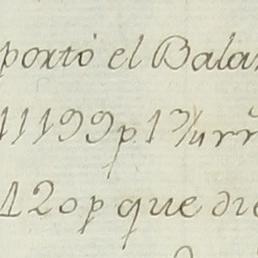 portó el Balan
11199p. 1 3/4 rr.
120p que die